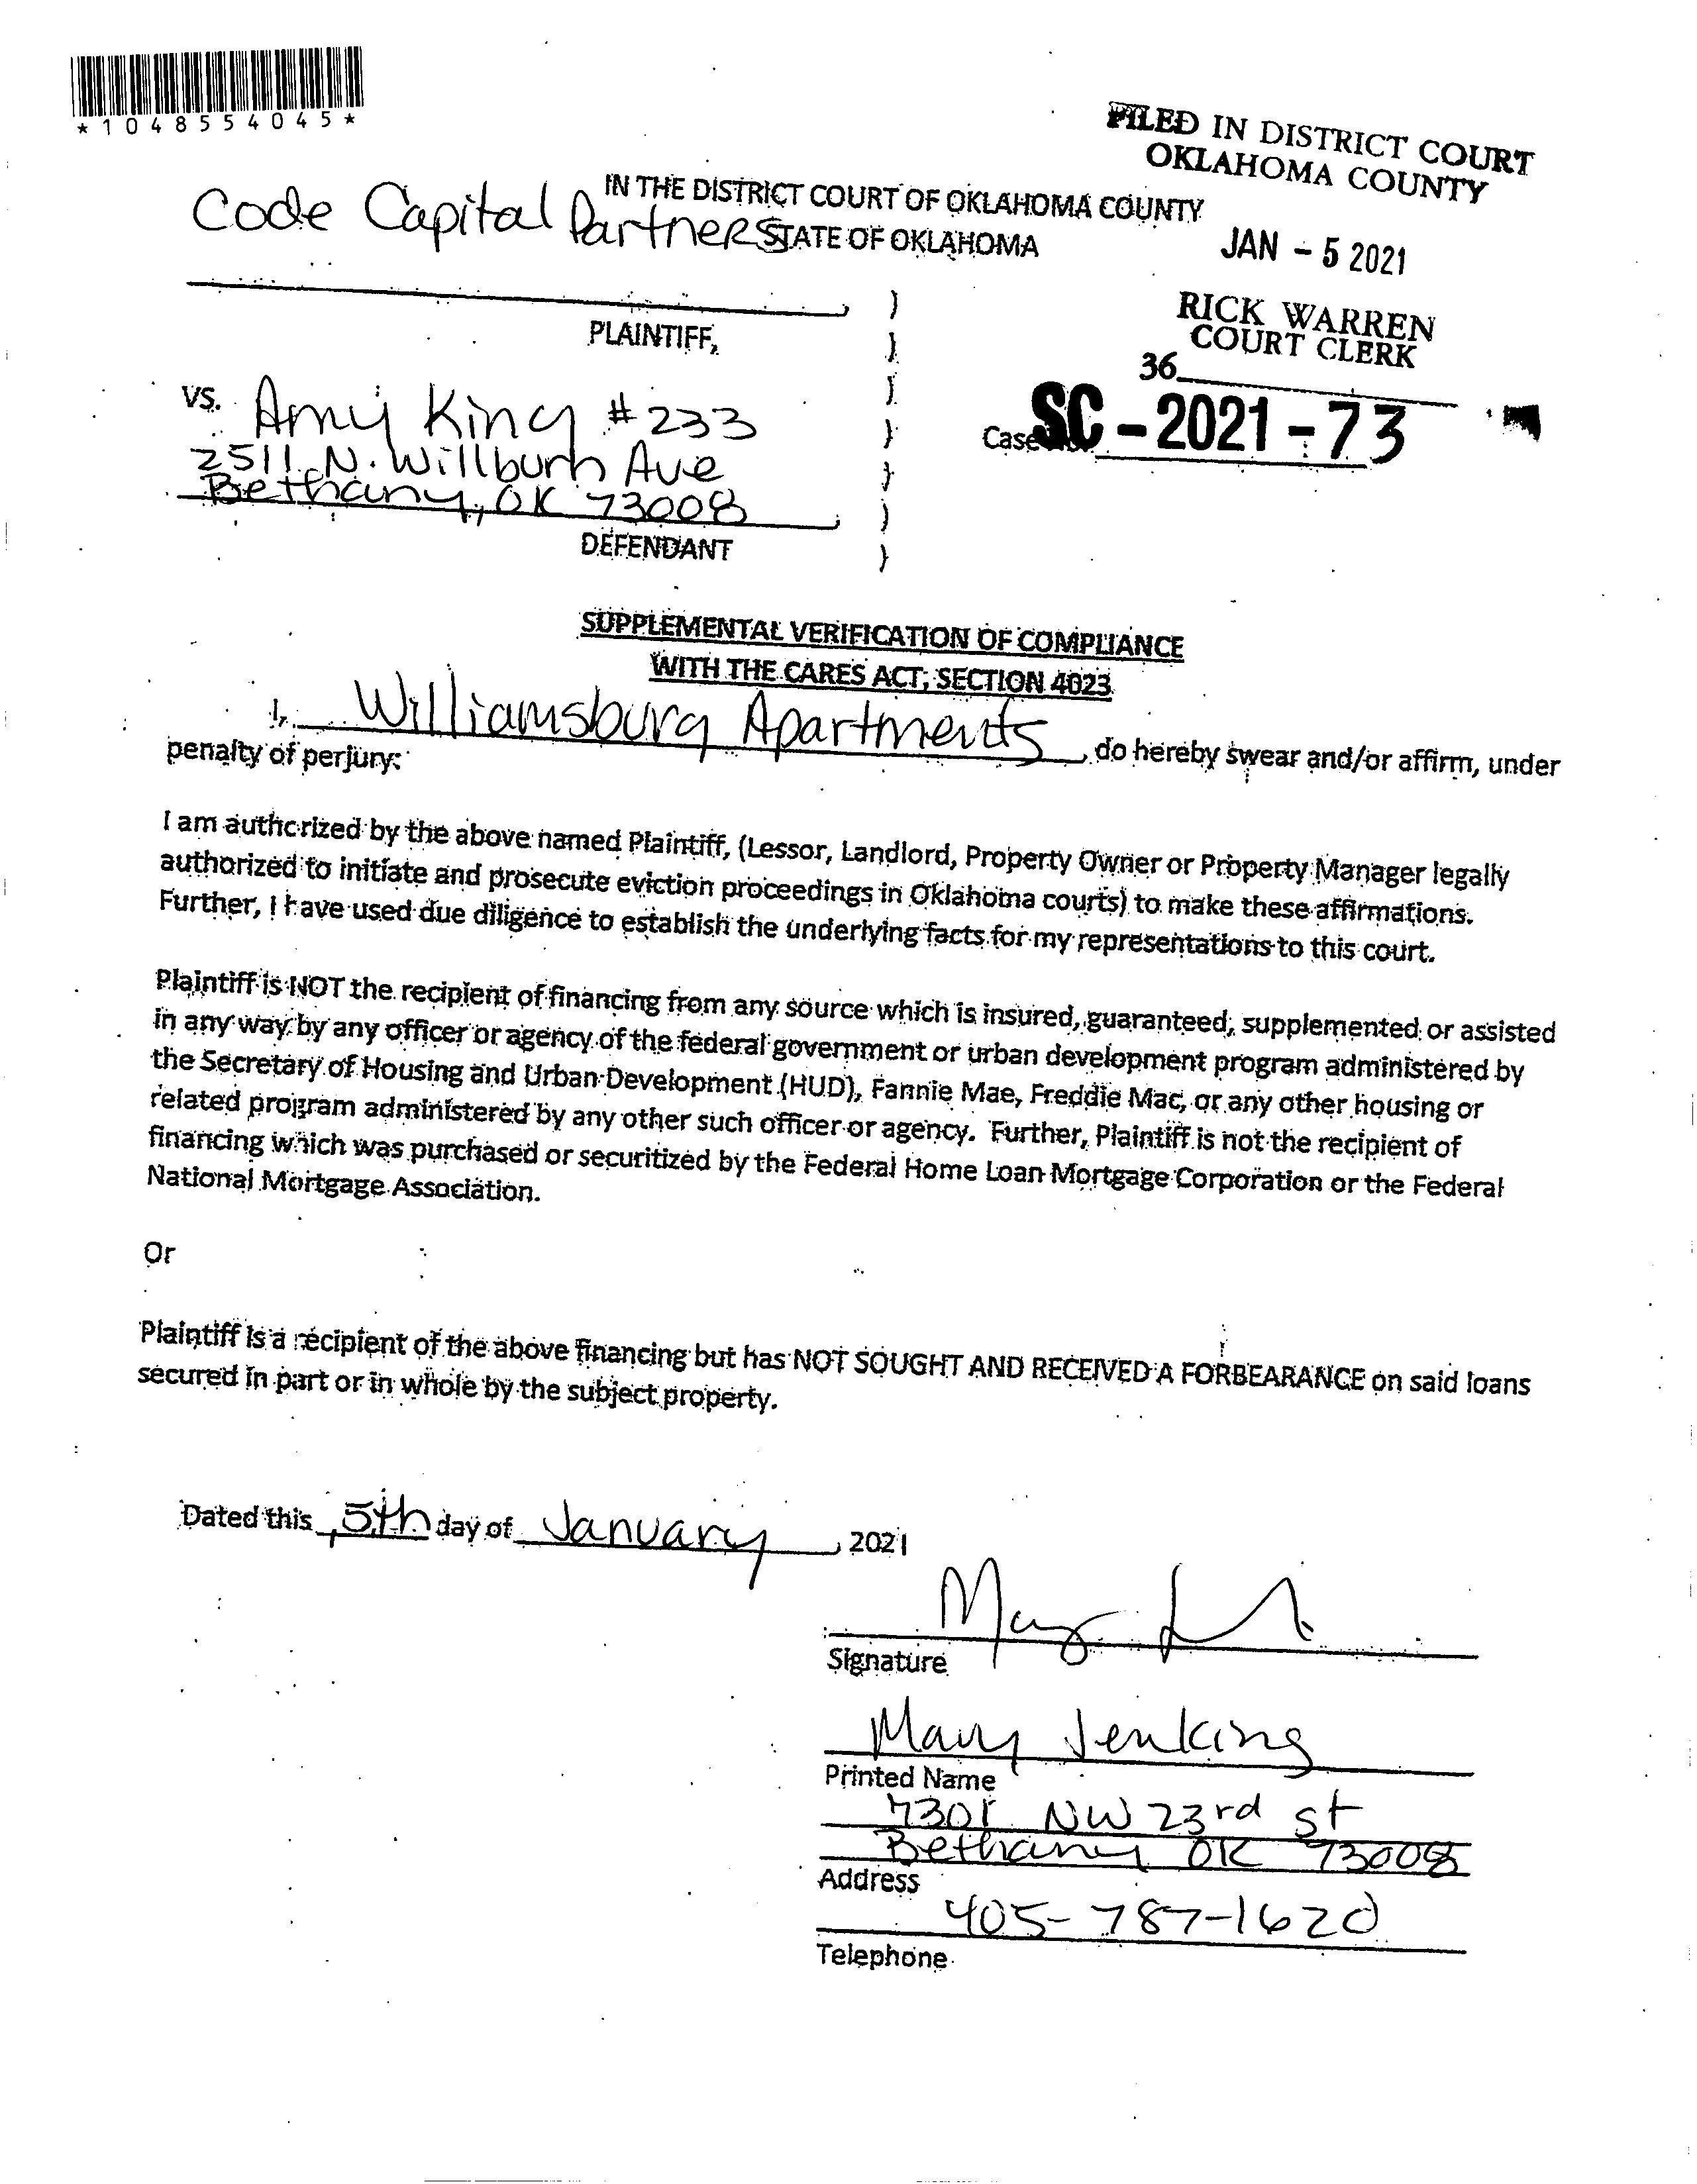 *1048554045*
FILED IN DISTRICT COURT
OKLAHOMA COUNTY
IN THE DISTRICT COURT OF OKLAHOMA COUNTY
Code Capital Partners STATE OF OKLAHOMA
JAN - 5 2021
RICK WARREN
COURT CLERK
36
PLAINTIFF,
vs. Amy King #233
2511 N. Willburn Ave
Bethany, OK 73008
DEFENDANT
)
)
)
)
)
)
)
Case SC - 2021 - 73
SUPPLEMENTAL VERIFICATION OF COMPLIANCE
WITH THE CARES ACT, SECTION 4023
I, Williamsburg Apartments, do hereby swear and/or affirm, under
penalty of perjury:
I am authorized by the above named Plaintiff, (Lessor, Landlord, Property Owner or Property Manager legally
authorized to initiate and prosecute eviction proceedings in Oklahoma courts) to make these affirmations.
Further, I have used due diligence to establish the underlying facts for my representations to this court.
Plaintiff is NOT the recipient of financing from any source which is insured, guaranteed, supplemented or assisted
in any way by any officer or agency of the federal government or urban development program administered by
the Secretary of Housing and Urban Development (HUD), Fannie Mae, Freddie Mac, or any other housing or
related program administered by any other such officer or agency. Further, Plaintiff is not the recipient of
financing which was purchased or securitized by the Federal Home Loan Mortgage Corporation or the Federal
National Mortgage Association.
Or
Plaintiff is a recipient of the above financing but has NOT SOUGHT AND RECEIVED A FORBEARANCE on said loans
secured in part or in whole by the subject property.
Dated this 5th day of January, 2021
Signature
Mary Jenkins
Printed Name
7301 NW 23rd st
Bethany OK 73008
Address
405-787-1620
Telephone